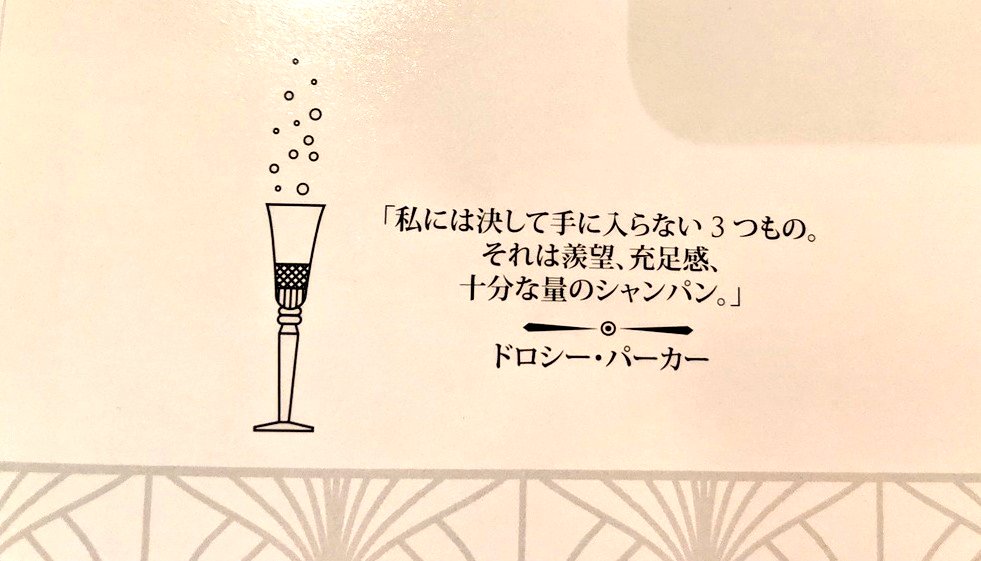 「私には決して手に入らない 3 つもの。
それは羨望、充足感、
十分な量のシャンパン。」
ドロシー・パーカー